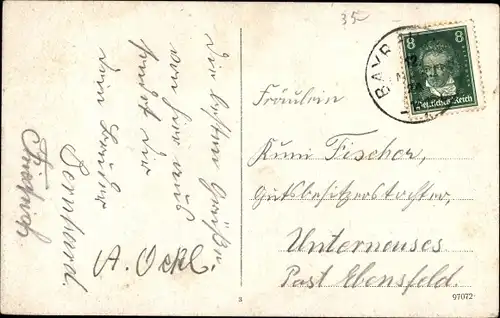 35
Die besten Grüße
von hier aus
sendet Dir
Dein Bruder
Bernhard.
A. Ockl.
Friedrich.
BAYR
8 8
Deutsches Reich
Fräulein
Kuni Fischer,
Gutsbesitzerstochter,
Unterneuses
Post Ebensfeld.
3
97072